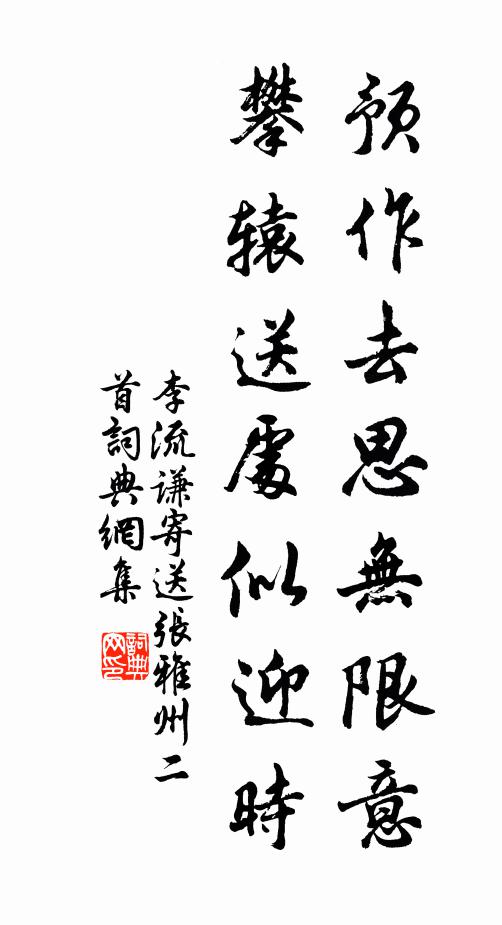 預作去思無限意
攀辕送處似迎時
李流谦寄送張雅州二
首詞典網集
詞典
网印